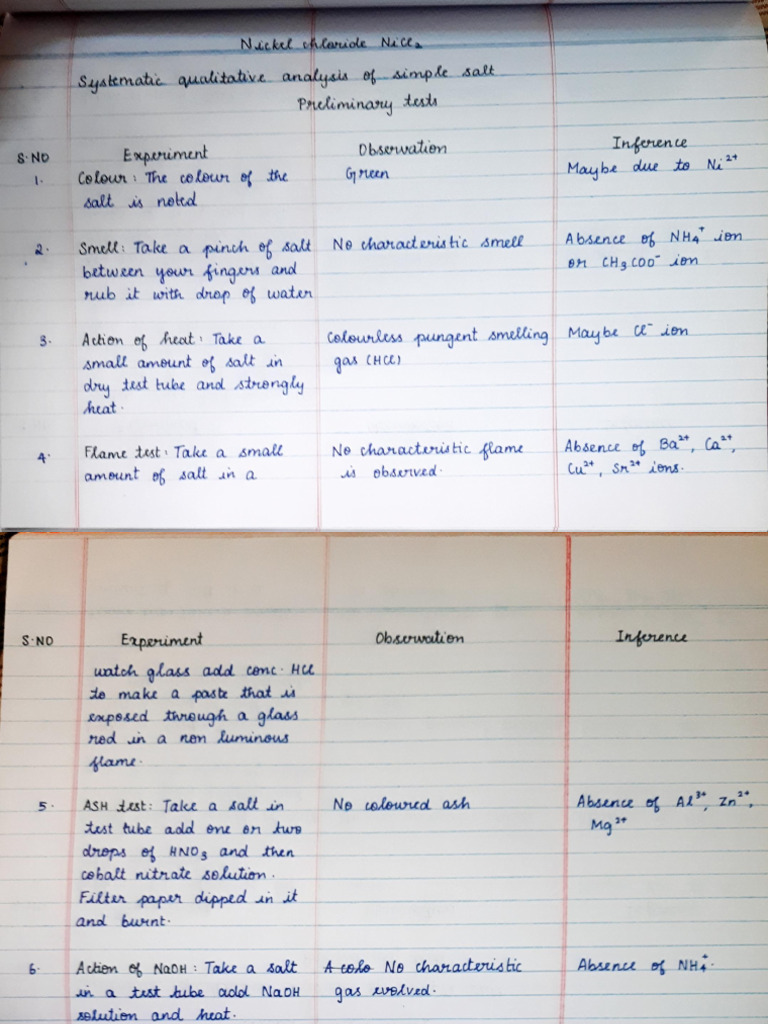 Nickel chloride NiCl₂
Systematic qualitative analysis of simple salt
Preliminary tests
S.NO Experiment Observation Inference
1. Colour: The colour of the Green Maybe due to Ni²⁺
salt is noted
2. Smell: Take a pinch of salt No characteristic smell Absence of NH₄⁺ ion
between your fingers and or CH₃COO⁻ ion
rub it with drop of water
3. Action of heat: Take a Colourless pungent smelling Maybe Cl⁻ ion
small amount of salt in gas (HCl)
dry test tube and strongly
heat.
4. Flame test: Take a small No characteristic flame Absence of Ba²⁺, Ca²⁺,
amount of salt in a is observed. Cu²⁺, Sr²⁺ ions.
S.NO Experiment Observation Inference
watch glass add conc. HCl
to make a paste that is
exposed through a glass
rod in a non luminous
flame.
5. ASH test: Take a salt in No coloured ash Absence of Al³⁺, Zn²⁺,
test tube add one or two Mg²⁺
drops of HNO₃ and then
cobalt nitrate solution.
Filter paper dipped in it
and burnt.
6. Action of NaOH: Take a salt A colo No characteristic Absence of NH₄⁺.
in a test tube add NaOH gas evolved.
solution and heat.